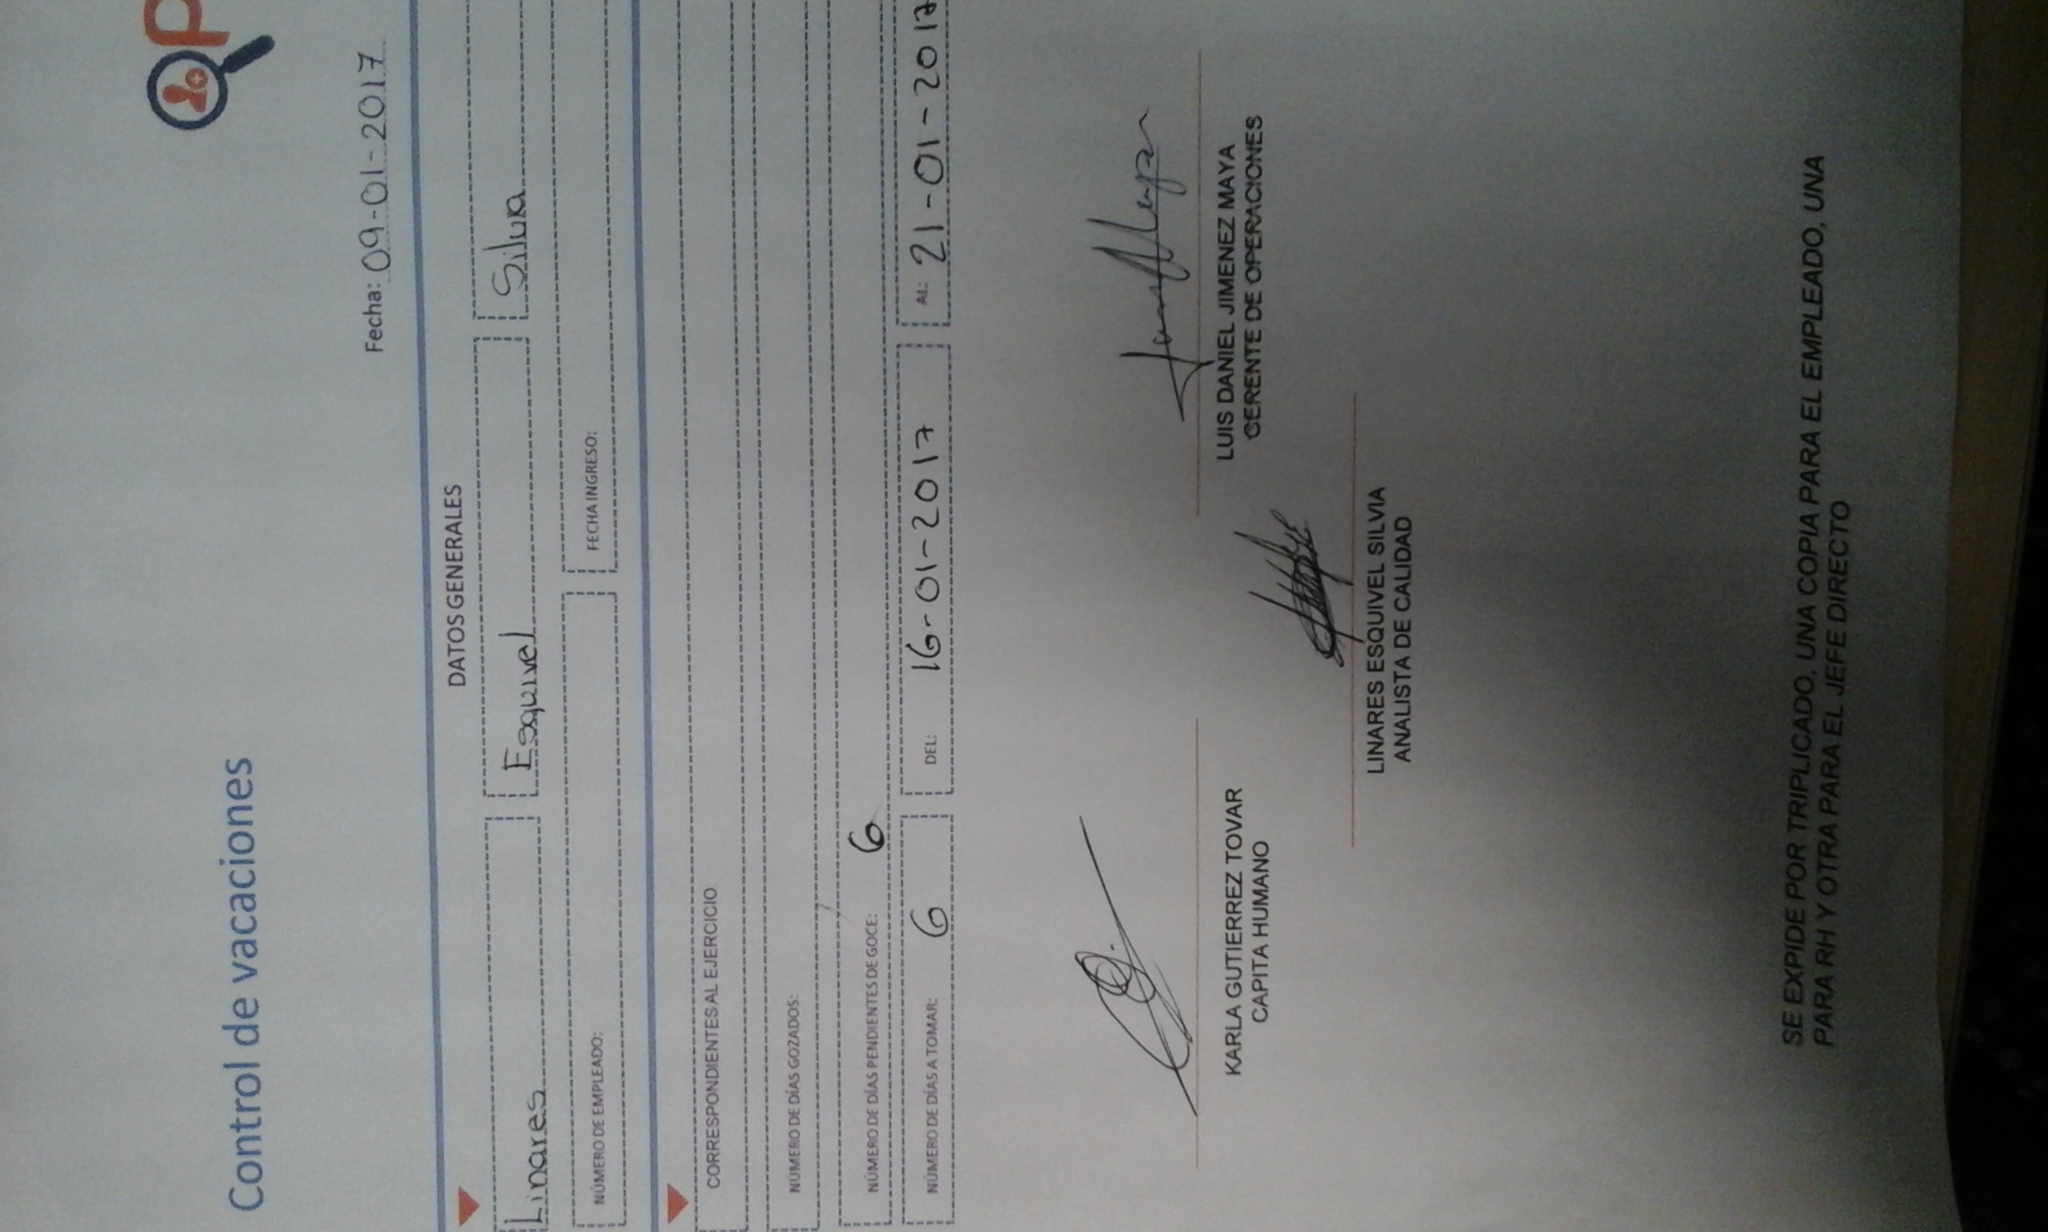 P
Control de vacaciones
Fecha: 09-01-2017
DATOS GENERALES
Linares Esquivel Silvia
NÚMERO DE EMPLEADO: FECHA INGRESO:
CORRESPONDIENTES AL EJERCICIO
NÚMERO DE DÍAS GOZADOS:
NÚMERO DE DÍAS PENDIENTES DE GOCE: 6
NÚMERO DE DÍAS A TOMAR: 6 DEL: 16-01-2017 AL: 21-01-2017
KARLA GUTIERREZ TOVAR
CAPITA HUMANO
LUIS DANIEL JIMENEZ MAYA
GERENTE DE OPERACIONES
LINARES ESQUIVEL SILVIA
ANALISTA DE CALIDAD
SE EXPIDE POR TRIPLICADO, UNA COPIA PARA EL EMPLEADO, UNA
PARA RH Y OTRA PARA EL JEFE DIRECTO